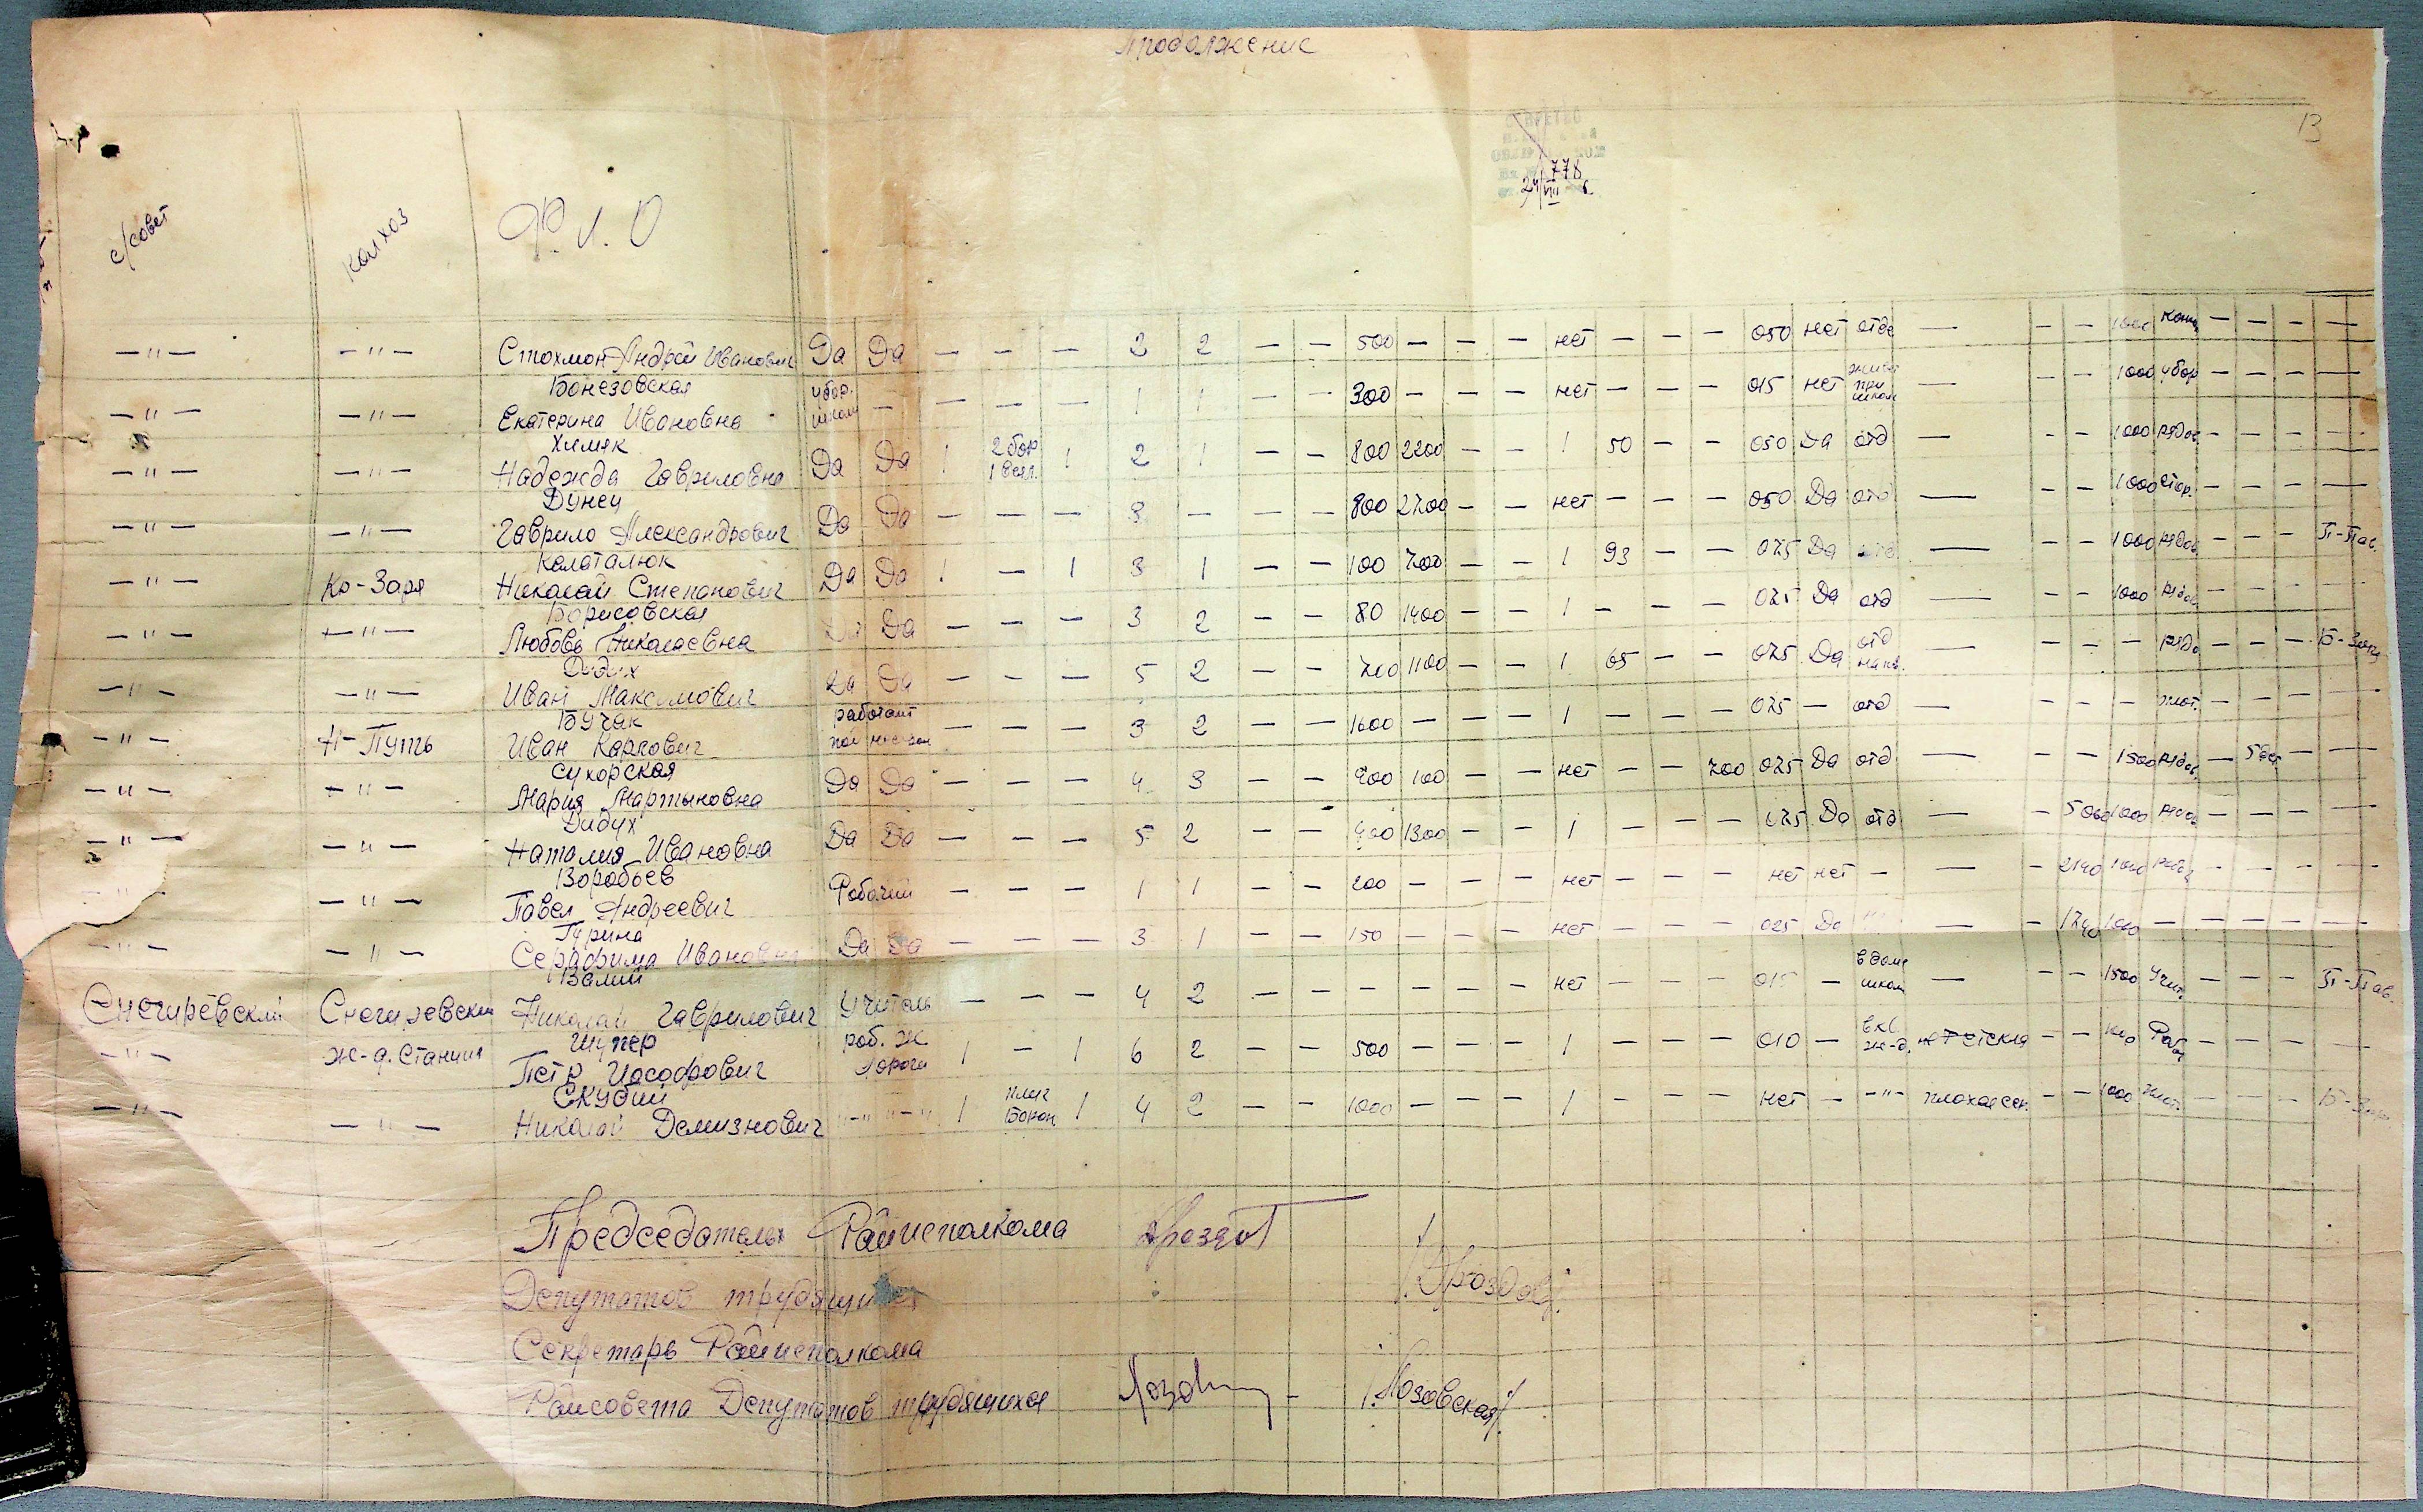 продолжение
13
778
24/VII
с/совет колхоз Ф.И.О
— " — — " — Стохмон Андрей Иванович Да Да — — — 2 2 — — 500 — — — нет — — — 050 нет отде — — — 1000 — — — —
Бонезовская
— " — — " — Екатерина Ивановна убор. школы — — — — 1 1 — — 300 — — — нет — — — 015 нет при школе — — — 1000 убор — — — —
Химяк
— " — — " — Надежда Гавриловна Да Да 1 2 бор 1 вел. 1 2 1 — — 800 2200 — — 1 50 — — 050 Да отд — — — 1000 рядов — — — —
Дунец
— " — — " — Гаврило Александрович Да Да — — — 3 — — — 800 2700 — — нет — — — 050 Да отд — — — 1000 стор. — — — —
Колаталюк
— " — Кр-Заря Николай Степанович Да Да 1 — 1 3 1 — — 100 700 — — 1 93 — — 025 Да отд — — — 1000 рядов — — — П-Пав.
Борисовская
— " — — " — Любовь Николаевна Да Да — — — 3 2 — — 80 1400 — — 1 — — — 025 Да отд — — — 1000 рядов — — — —
Дидух
— " — — " — Иван Максимович Да Да — — — 5 2 — — 700 1100 — — 1 65 — — 025 Да отд — — — — рядо — — —
Бучак
— " — Н-Путь Иван Карпович работает — — — 3 2 — — 1600 — — — 1 — — — 025 — отд — — — — — — — —
Сухорская
— " — — " — Мария Мартыновна Да Да — — — 4 3 — — 900 100 — — нет — — 700 025 Да отд — — — 1500 рядов — — —
Дидух
— " — — " — Наталия Ивановна Да Да — — — 5 2 — — 900 1300 — — 1 — — — 025 Да отд — — 5000 1000 рядов — — — —
Воробьев
— " — — " — Павел Андреевич Рабочий — — — 1 1 — — 200 — — — нет — — — нет нет — — — 2140 1000 — — — —
Гурина
— " — — " — Серафима Ивановна Да Да — — — 3 1 — — 150 — — — нет — — — 025 Да — — 1740 1000 — — — — —
Валии
Снегирёвский Снегиревский Николай Гаврилович Учитель — — — 4 2 — — — — — — нет — — — 015 — в доме школ — — — 1500 Учит. — — — П-Пав.
Шупер
— " — ж-д. Станция Петр Иософович раб. ж. дороги 1 — 1 6 2 — — 500 — — — 1 — — — 010 — в кв. ж-д. нет стекла — — Рабоч — — — —
Скубии
— " — — " — Николай Демизнович — " — " — " 1 плуг Борон 1 4 2 — — 1000 — — — 1 — — — нет — — " — — — 1000 — — —
Председатель Райисполкома
Депутатов трудящихся /Дроздов/.
Секретарь Райисполкома
Райсовета Депутатов трудящихся /Лозовская/